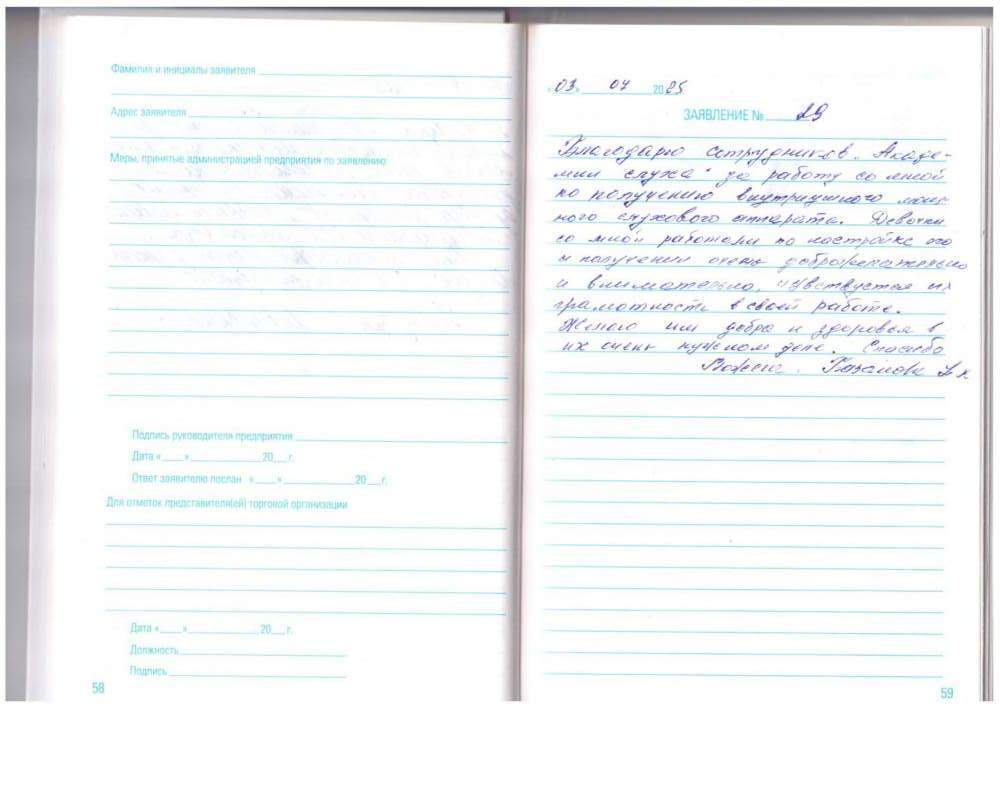 Фамилия и инициалы заявителя
Адрес заявителя
Меры, принятые администрацией предприятия по заявлению:
Подпись руководителя предприятия
Дата « » 20 г.
Ответ заявителю послан « » 20 г.
Для отметок представителя(ей) торговой организации
Дата « » 20 г.
Должность
Подпись
58
«03» 04 2025
ЗАЯВЛЕНИЕ № 29
Благодарю сотрудников „Акаде-
мии слуха" за работу со мной
по получению внутриушного
ного слухового аппарата. Девочки
со мной работали по настройке его
и получении очень доброжелательно
и внимательно, чувствуется их
грамотность в своей работе.
Желаю им добра и здоровья в
их очень нужном деле. Спасибо
59